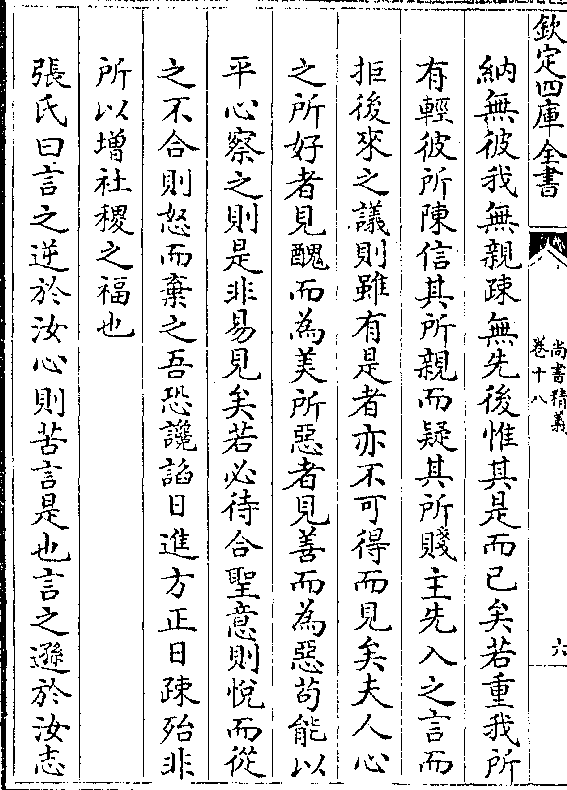 欽定四庫全書
尚書精義
卷十八
六
納無彼我無親踈無先後惟其是而已矣若重我所
有輕彼所陳信其所親而疑其所賤主先入之言而
拒後來之議則雖有是者亦不可得而見矣夫人心
之所好者見醜而為美所惡者見善而為惡苟能以
平心察之則是非易見矣若必待合聖意則悅而從
之不合則怒而棄之吾恐讒諂日進方正日踈殆非
所以增社稷之福也
張氏曰言之逆於汝心則苦言是也言之遜於汝志